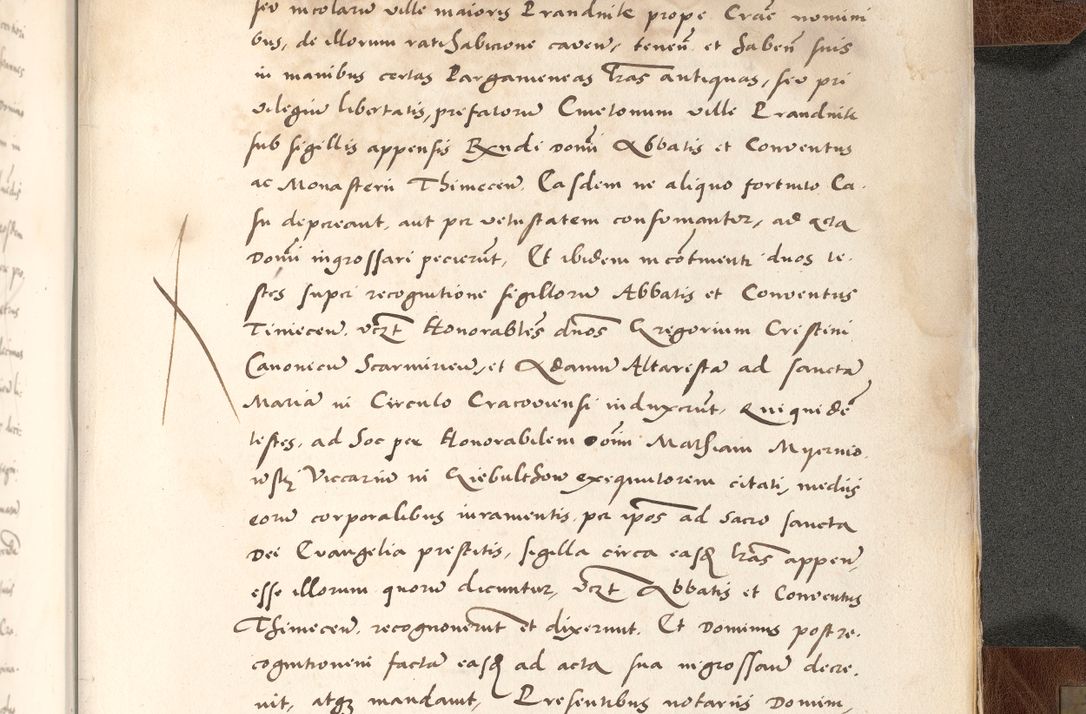 seu incolarū ville maioris Prandnik prope Crac̄ nomini
bus, de illorum ratihabicione caven̄, tenen̄ et haben̄ suis
in manibus certas Pargameneas l̄ras antiquas, seu pri
vilegiū libertatis, prefatorū Cmetonum ville Prandnik
sub sigillis appensis Rn̄di domī Abbatis et Conventus
ac Monasterii Thinecen̄. Easdem ne aliquo fortuito Ca
su depereant, aut per vetustatem consumantur, ad acta
domī ingrossari pecierūt, Et ibidem in cōtinenti duos te
stes super recognitione sigillorū Abbatis et Conventus
Tiniecen̄. vcz̄t Honorabl̄es dn̄os Gregorium Crestini
Canonicū Scarmirien̄, et Adamū Altaristā ad sanctā
Mariā in Circulo Cracoviensi induxerūt. Qui quidē
testes, ad hoc per Honorabilem dōm Mathiam Myernio
Viccariū in Giebulthow exequutorem citati, mediis
eorū corporalibus iuramentis per ip̄os ad sacro sancta
Dei Evangelia prestitis, sigilla circa easdē l̄ras appen̄
esse illorum quorū dicuntur, vcz̄t Abbatis et Conventus
Thinecen̄. recognoverūt et dixerunt. Et Dominus post re
cognitionem factā easdē ad acta sua ingrossare decre
vit, atq; mandavit, Presentibus notariis Domin,